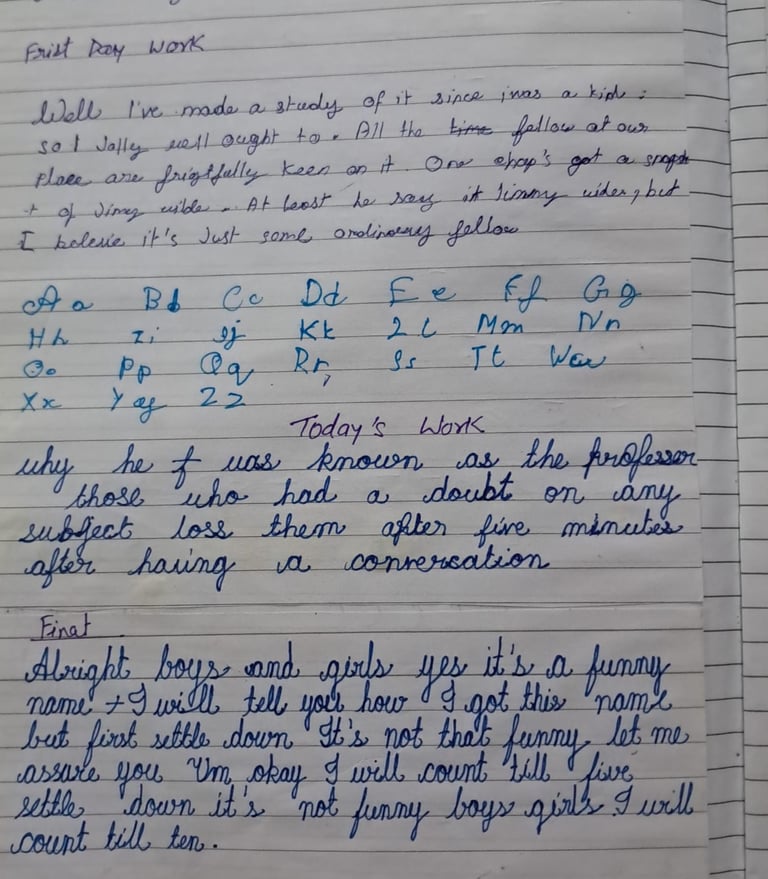 Frist Day Work
Well I've made a study of it since i was a kid;
so I Jolly well ought to. All the time fellow at our
Place are frightfully keen on it. One chap's got a
+ of Jimmy wible. At least he say it Jimmy wider, but
I beleive it's Just some ordinary fellow
Aa Bb Cc Dd Ee Ff Gg
Hh Ii Jj Kk Ll Mm Nn
Oo Pp Qq Rr, Ss Tt Ww
Xx Yy Zz
Today's Work
why he was known as the professor
those who had a doubt on any
subject loss them after five minutes
after having a conversation
Final
Alright boys and girls yes it's a funny
name I will tell you how I got this name
but first settle down It's not that funny let me
assure you Um okay I will count till five
settle down it's not funny boys girls I will
count till ten.